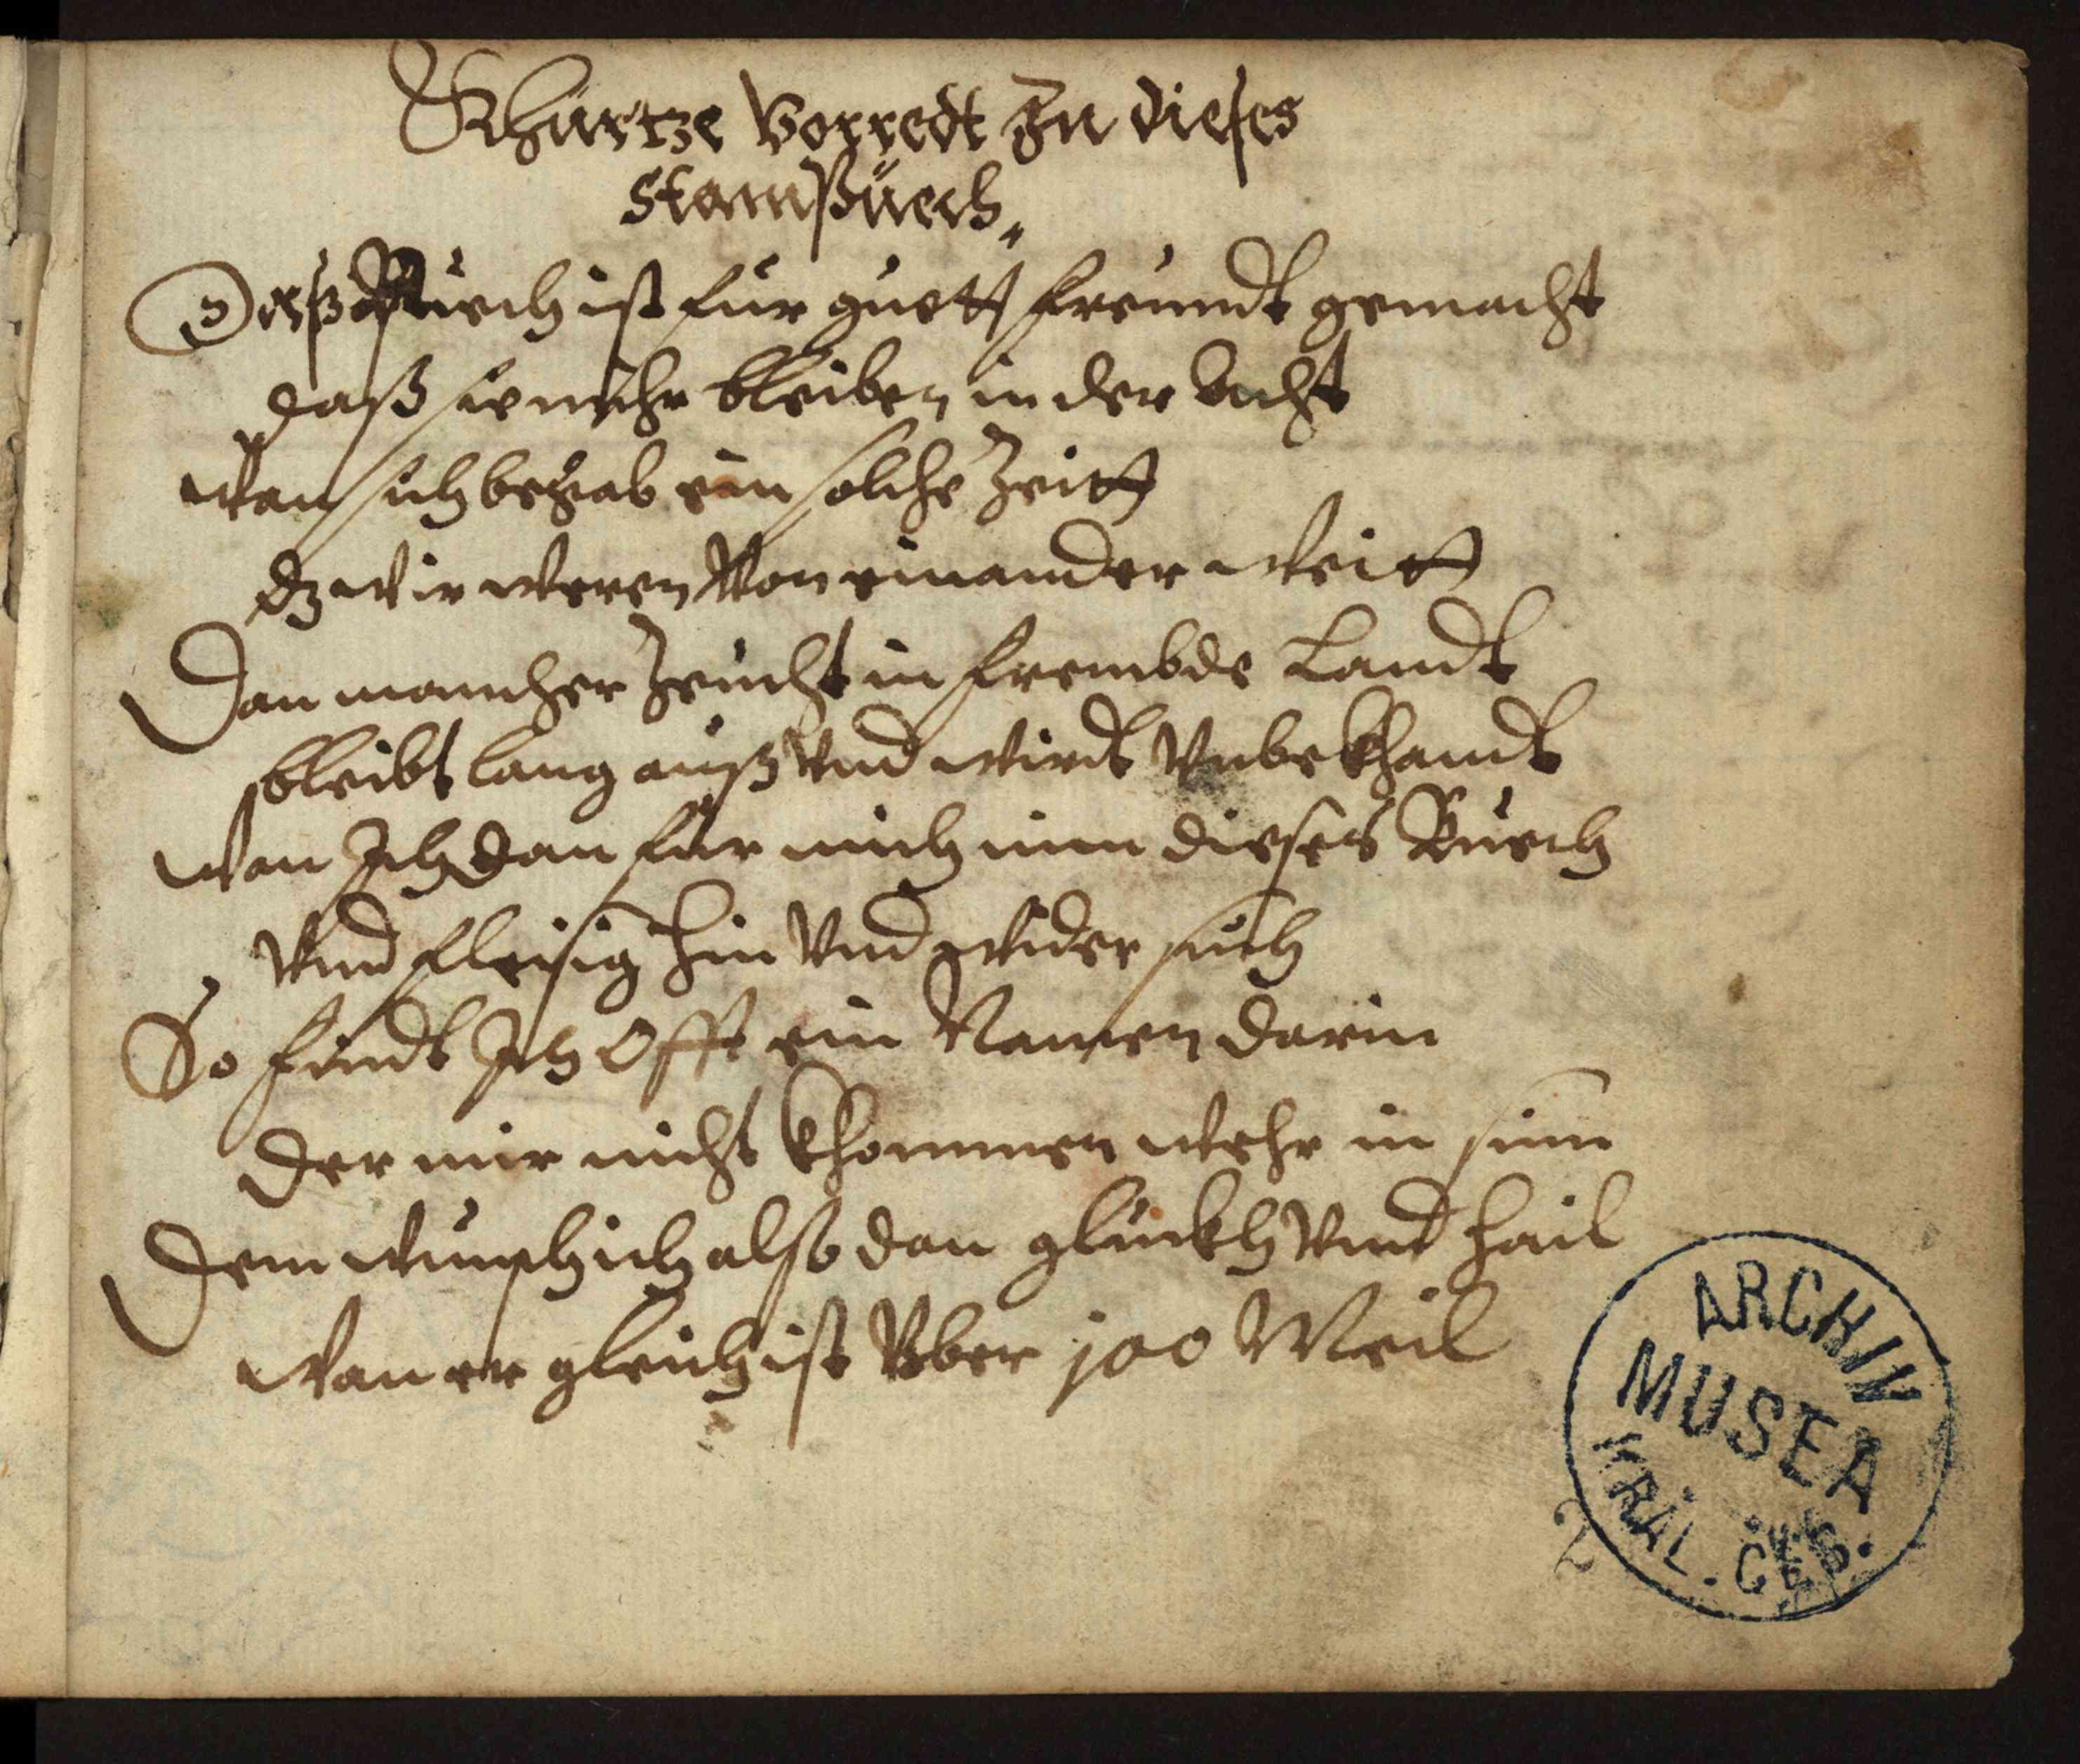 Khurtze Vorredt Zu dieses
Stambuech
Dasß Buech ist für guett Freundt gemacht
daß sie mehr bleiben in der Acht
Wan sich begab ein solche Zeitt
dz wir weren Von einander weitt
Dan mancher Zeucht in frembde Landt
bleibt lang auß Vnd wirdt Vnbekhandt
Wan Ich dan für mich nim dieses Buech
Vnd fleisig hin Vnd wider such
So findt Ich Offt ein Namen darin
der mir nicht khommen wehr in sinn
Dem wunsch ich also dan glückh Vnd hail
Wan er gleich ist Vber 100 Meil
ARCHIV
MUSEA
KRÁL. ČES.
2